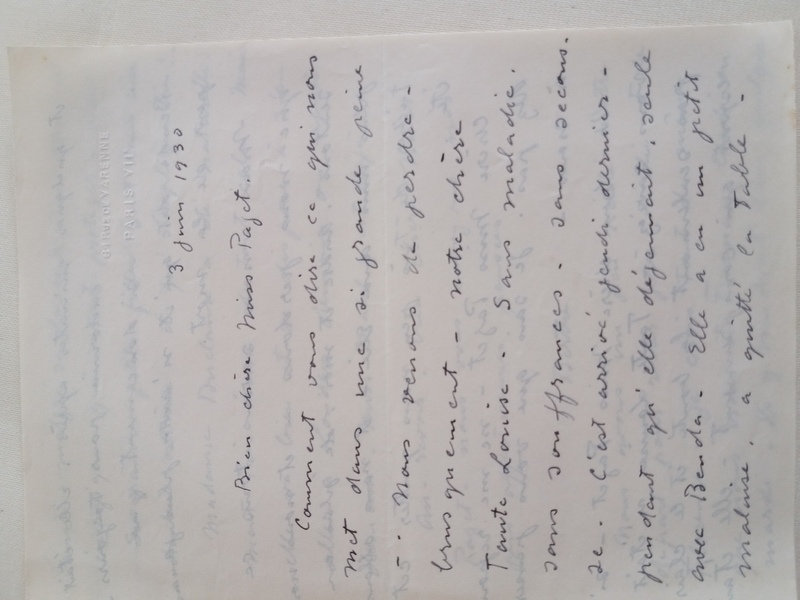 RUE DE VARENNE
PARIS VIIe
3 juin 1930
Bien chère Miss Paget.
Comment vous dire ce qui nous
met dans une si grande peine
-. Nous venons de perdre -
brusquement - notre chère
Tante Louise. Sans maladie.
sans souffrances. sans secous-
se. C'est arrivé jeudi dernier -
pendant qu'elle déjeunait, seule
avec Benda. Elle a eu un petit
malaise, a quitté la table -